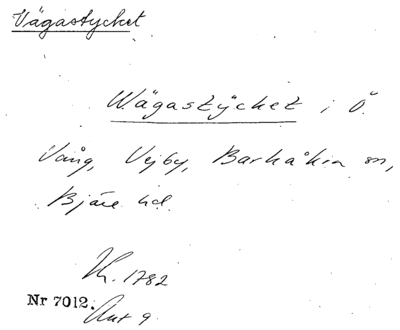 Vägastycket
Wägastÿcket i Ö
Vång, Vejby, Barkåkra sn,
Bjäre hd.
Kh. 1782
Nr 7012.
Akt 9